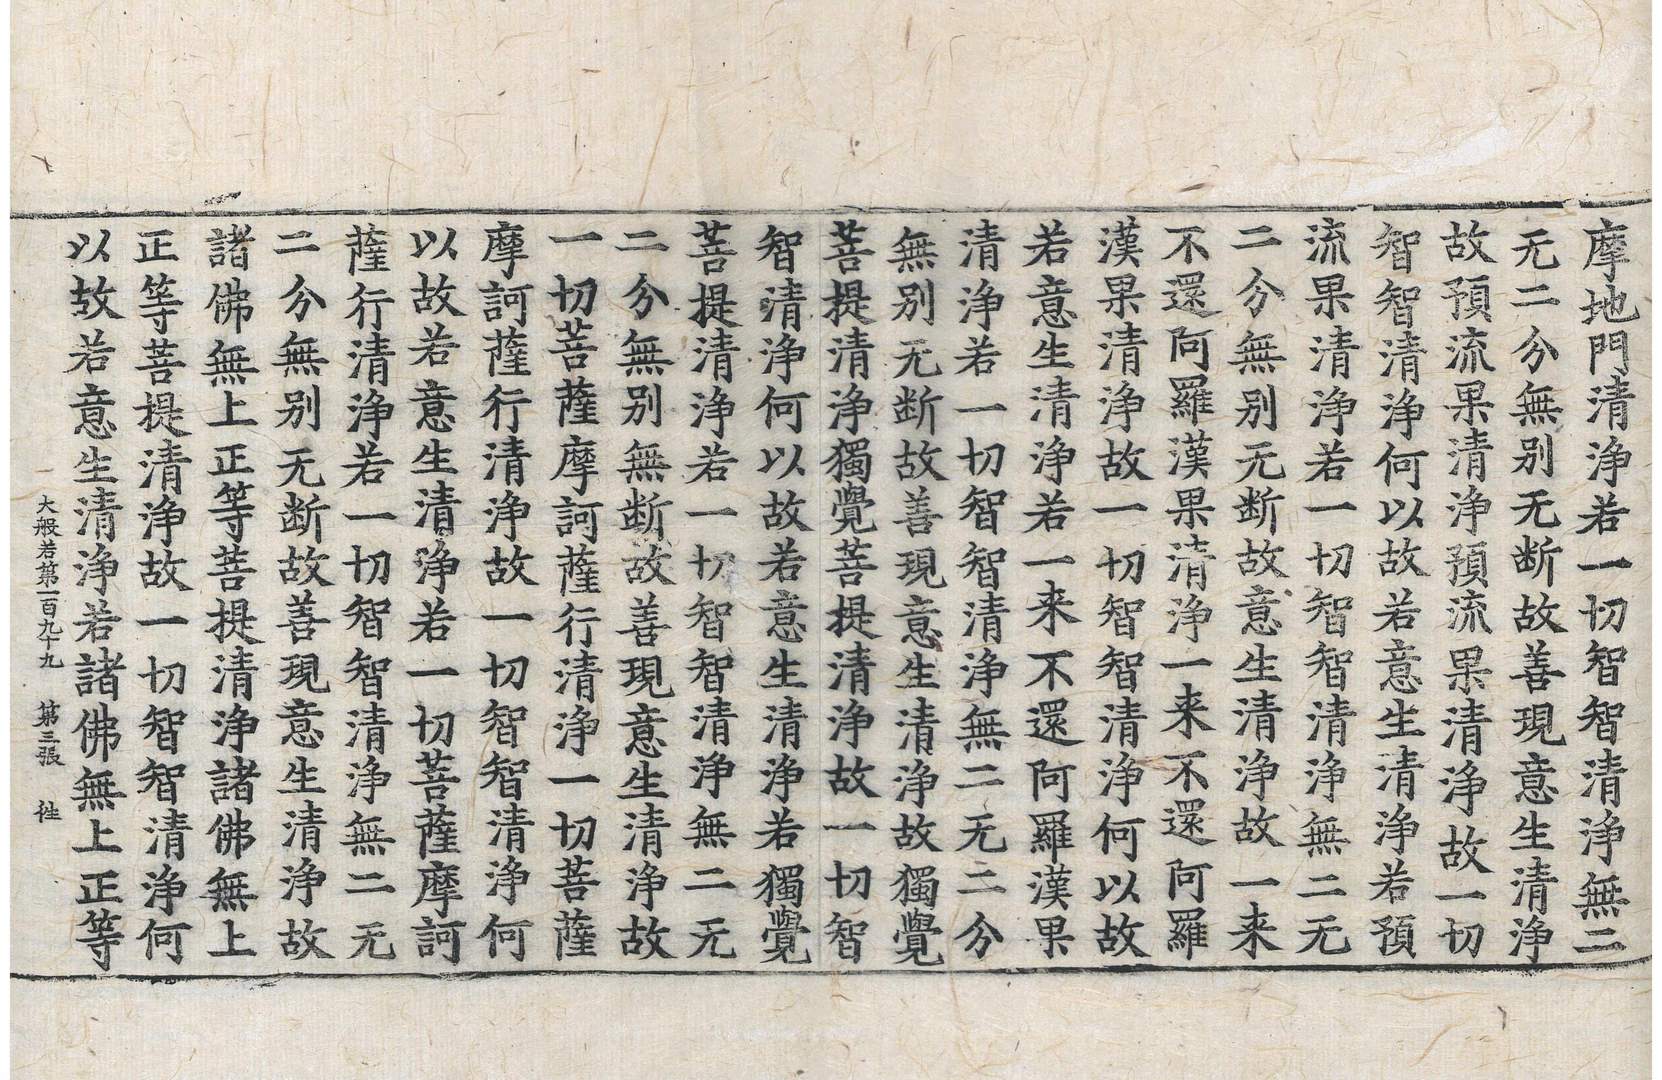 摩地門清浄若一切智智清浄無二
无二分無别无断故善現意生清浄
故預流果清浄預流果清浄故一切
智智清浄何以故若意生清浄若預
流果清浄若一切智智清浄無二无
二分無别无断故意生清浄故一来
不還阿羅漢果清浄一来不還阿羅
漢果清浄故一切智智清浄何以故
若意生清浄若一来不還阿羅漢果
清浄若一切智智清浄無二无二分
無别无断故善現意生清浄故獨覺
菩提清浄獨覺菩提清浄故一切智
智清浄何以故若意生清浄若獨覺
菩提清浄若一切智智清浄無二无
二分無别無断故善現意生清浄故
一切菩薩摩訶薩行清浄一切菩薩
摩訶薩行清浄故一切智智清浄何
以故若意生清浄若一切菩薩摩訶
薩行清浄若一切智智清浄無二无
二分無别无断故善現意生清浄故
諸佛無上正等菩提清浄諸佛無上
正等菩提清浄故一切智智清浄何
以故若意生清浄若諸佛無上正等
大般若第一百九十九 第三張 徃